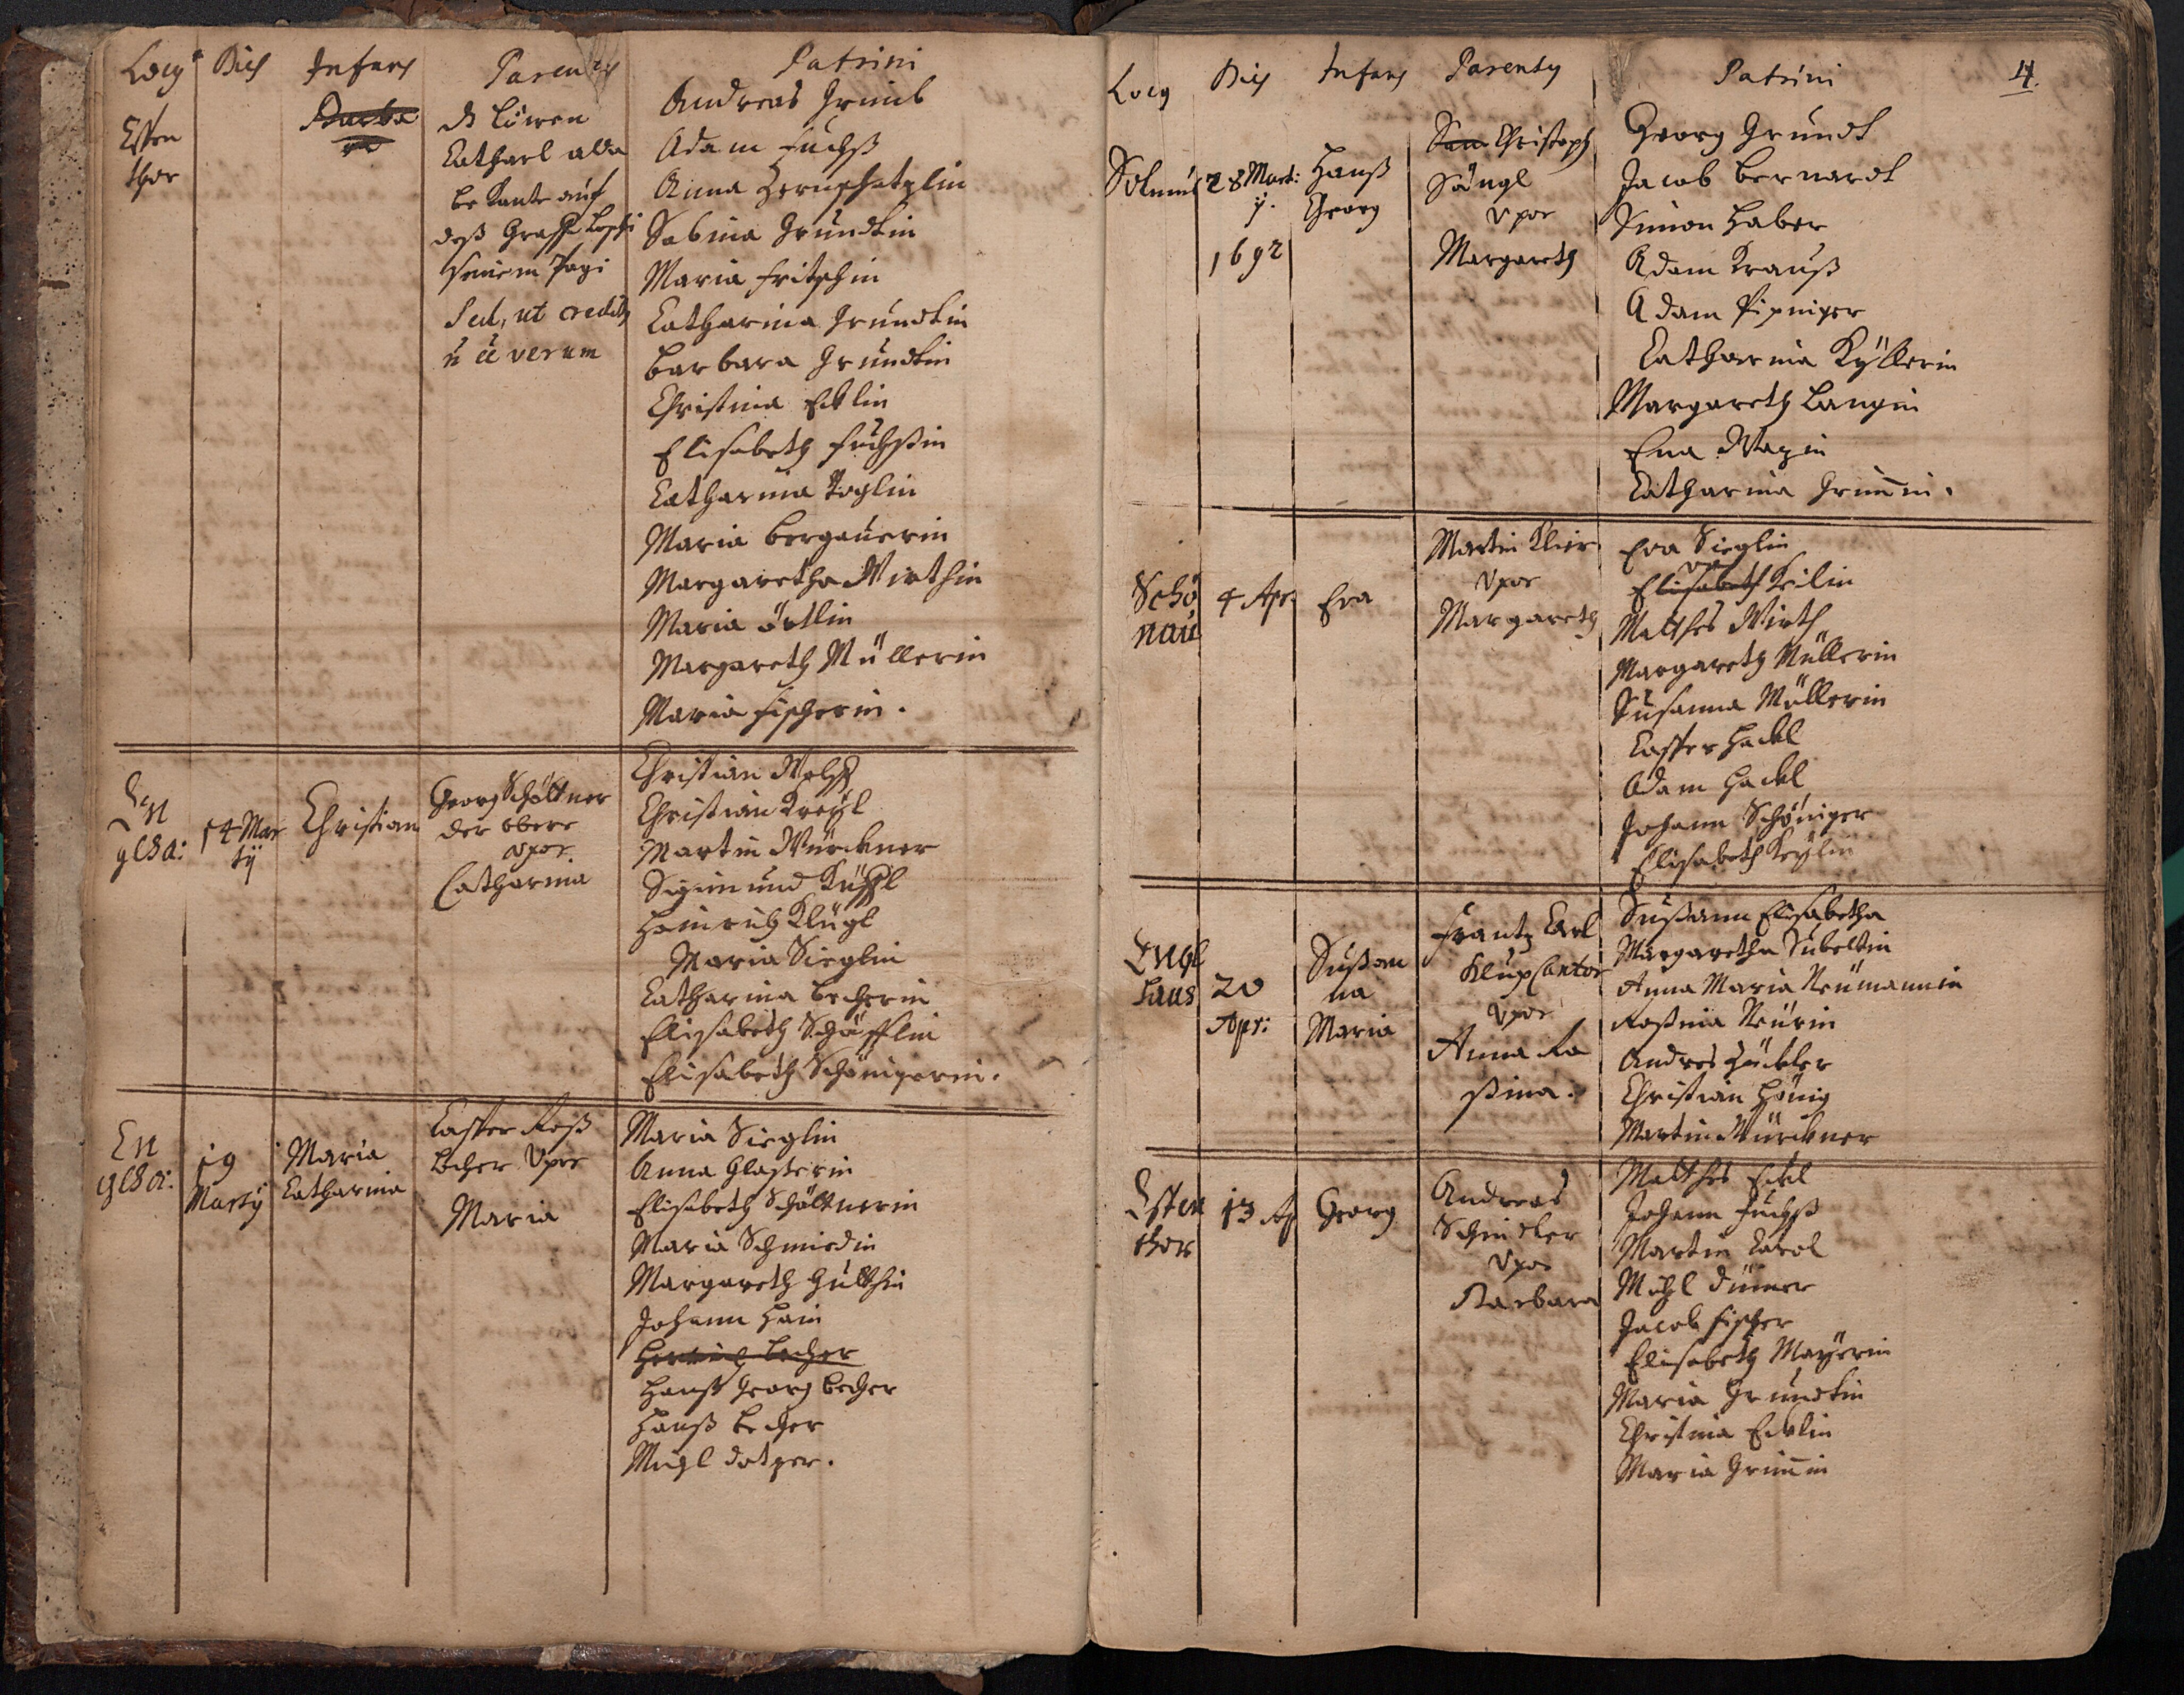 Locus Dies Infans Parentes Patrini
Esten
thor
Barba
ra
Catharl alda
bekante auf
deß
seinem Pagi
Sed, ut credit
verum
Andreas Grimb
Adam Fuchß
Anna
Sabina Grundtin
Maria Fritschin
Catharina Grundtin
Barbara Grundtin
Christina Ecklin
Elisabeth Fuchßin
Catharina Voglin
Maria Bergauerin
Margaretha Wirthin
Maria Örtlin
Margareth Müllerin
Maria Fischerin.
En
glsa:
14 Mar
tÿ
Christian
Georg Schöltner
der obere
Vxor.
Catharina
Christian
Christian Kreÿl
Martin Würckner
Sigimund
Heinrich Klügl
Maria Sieglin
Catharina Becherin
Elisabeth Schäfflin
Elisabeth Schönigerin.
En
glsa:
19
Martÿ
Maria
Catharina
Casper Roß
becher Vxor
Maria
Maria Sieglin
Anna Glaserin
Elisabeth Schöltnerin
Maria Schmiedin
Margareth
Johann Hain
becher
Hanß Georg becher
Hanß becher
Michl
Locus Dies Infans Parentes Patrini 4.
Solmus
28 Mart:
j.
1692
Hanß
Georg
Christoph
Sängl
Vxor
Margareth
Georg Grundt
Jacob Bernardt
Simon Haber
Adam Krauß
Adam
Catharina Kÿllerin
Margareth Langin
Eva
Catharina Grim̄in.
Schö
nau
4 Apr.
Eva
Martin Klier
Vxor
Margareth
Eva Sieglin
Elisabeth Keilin
Matthes Wirth
Margareth Müllerin
Susanna Müllerin
Casper Hackl
Adam Hackl
Johann Schöniger
Elisabeth Keÿlin
Engl
haus
20
Apr:
Sußan
na
Maria
Frantz Carl
Klup Cantor
Vxor
Anna Ro
ßina.
Sußann Elisabetha
Margaretha
Anna Maria Neümannin
Roßina
Andres
Christian König
Martin Würckner
Esten
thor
13 Ap
Georg
Andreas
Schindler
Vxor
Barbara
Matthes Eckl
Johann Fuchß
Martin Carol
Michl
Jacob Fischer
Elisabeth Maÿerin
Maria Grundtin
Christina Ecklin
Maria Grim̄in